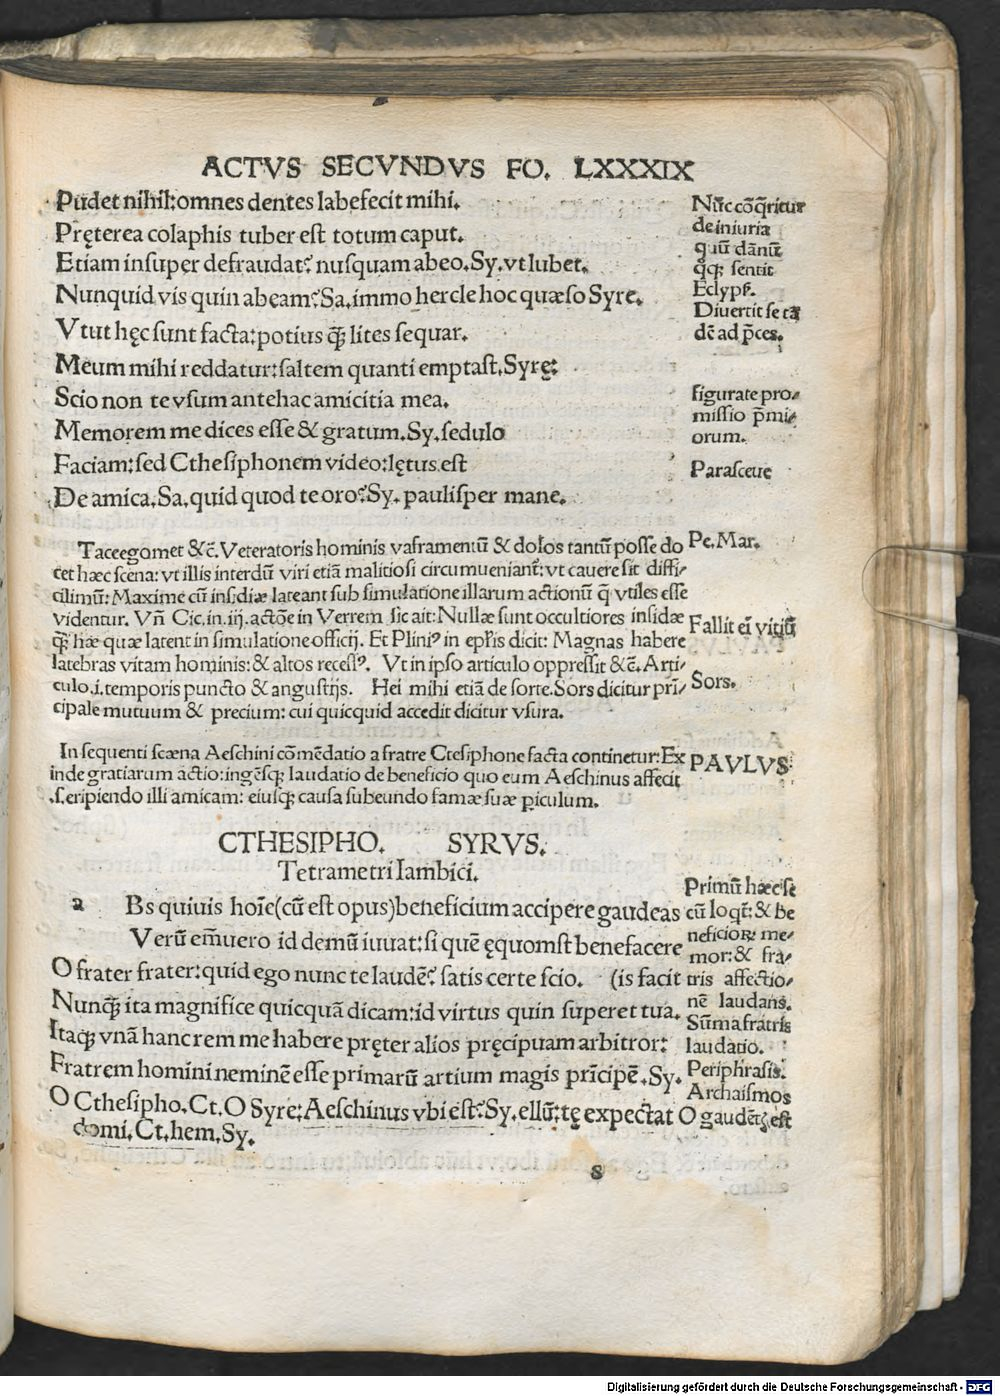 ACTVS SECVNDVS FO. LXXXIX
Pudet nihil:omnes dentes labefecit mihi.
Pręterea colaphis tuber est totum caput.
Etiam insuper defraudat? nusquam abeo.Sy.vt lubet.
Nunquid vis quin abeam?Sa.immo hercle hoc quæso Syre.
Vtut hęc sunt facta:potius q̃ lites sequar.
Meum mihi reddatur:saltem quanti emptast.Syrę:
Scio non te vsum antehac amicitia mea.
Memorem me dices esse & gratum.Sy.sedulo
Faciam:sed Cthesiphonem video:lętus est
De amica.Sa.quid quod te oro?Sy.paulisper mane.
Nũc cõq̃ritur
de iniuria
quũ dãnũ
qq; sentit
Eclyps.
Diuertit se tã
dẽ ad p̃ces.
figurate pro-
missio p̃mi-
orum.
Parasceue
Taceegomet &c̃. Veteratoris hominis vaframentũ & dolos tantũ posse do
cet hæc scena: vt illis interdũ viri etiã malitiosi circumueniant̃: vt cauere sit diffi-
cilimũ: Maxime cũ insidiæ lateant sub simulatione illarum actionũ q̃ vtiles esse
videntur. Vñ Cic.in.iij.actõe in Verrem sic ait: Nullæ sunt occultiores insidæ
q̃ hæ quæ latent in simulatione officij. Et Pliniꝰ in epl̃is dicit: Magnas habere
latebras vitam hominis:& altos recessꝰ. Vt in ipso articulo oppressit &c̃. Arti-
culo.i.temporis puncto & angustijs. Hei mihi etiã de sorte.Sors dicitur prĩ-
cipale mutuum & precium: cui quicquid accedit dicitur vsura.
Pe.Mar.
Fallit eĩ vitiũ
Sors.
In sequenti scæna Aeschini cõmẽdatio a fratre Ctesiphone facta continetur: Ex
inde gratiarum actio: ingẽsq; laudatio de beneficio quo eum Aeschinus affecit
.s.eripiendo illi amicam: eiusq; causa subeundo famæ suæ ꝑiculum.
PAVLVS
CTHESIPHO. SYRVS.
Tetrametri Iambici.
a Bs quiuis hoĩe(cũ est opus)beneficium accipere gaudeas
Verũ em̃uero id demũ iuuat:si quẽ ęquomst benefacere
O frater frater:quid ego nunc te laudẽ? satis certe scio. (is facit
Nunq̃ ita magnifice quicquã dicam:id virtus quin superet tua.
Itaq; vnã hanc rem me habere pręter alios pręcipuam arbitror:
Fratrem homini neminẽ esse primarũ artium magis prĩcipẽ.Sy.
O Cthesipho.Ct.O Syre:Aeschinus vbi est?Sy.ellũ:tę expectat
domi.Ct.hem.Sy.
Primũ hæc se
cũ loqt̃:& be
neficioꝝ me-
mor:& fra-
tris affectio-
nẽ laudans.
Sũma fratris
laudatio.
Periphrasis.
Archaismos
O gaudẽtis est
s
Digitalisierung gefördert durch die Deutsche Forschungsgemeinschaft - DFG